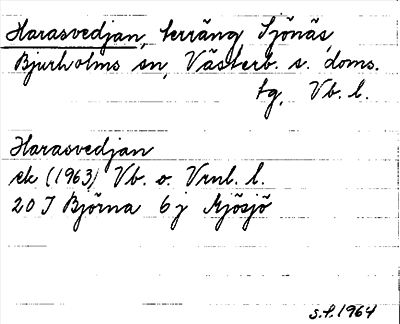 Harasvedjan, terräng Sjönäs,
Bjurholms sn, Västerb. s. doms.
tg, Vb. l.
Harasvedjan
ek (1963) Vb. o. Vrnl. l.
20 J Björna 6 j Mjösjö
s.f. 1964